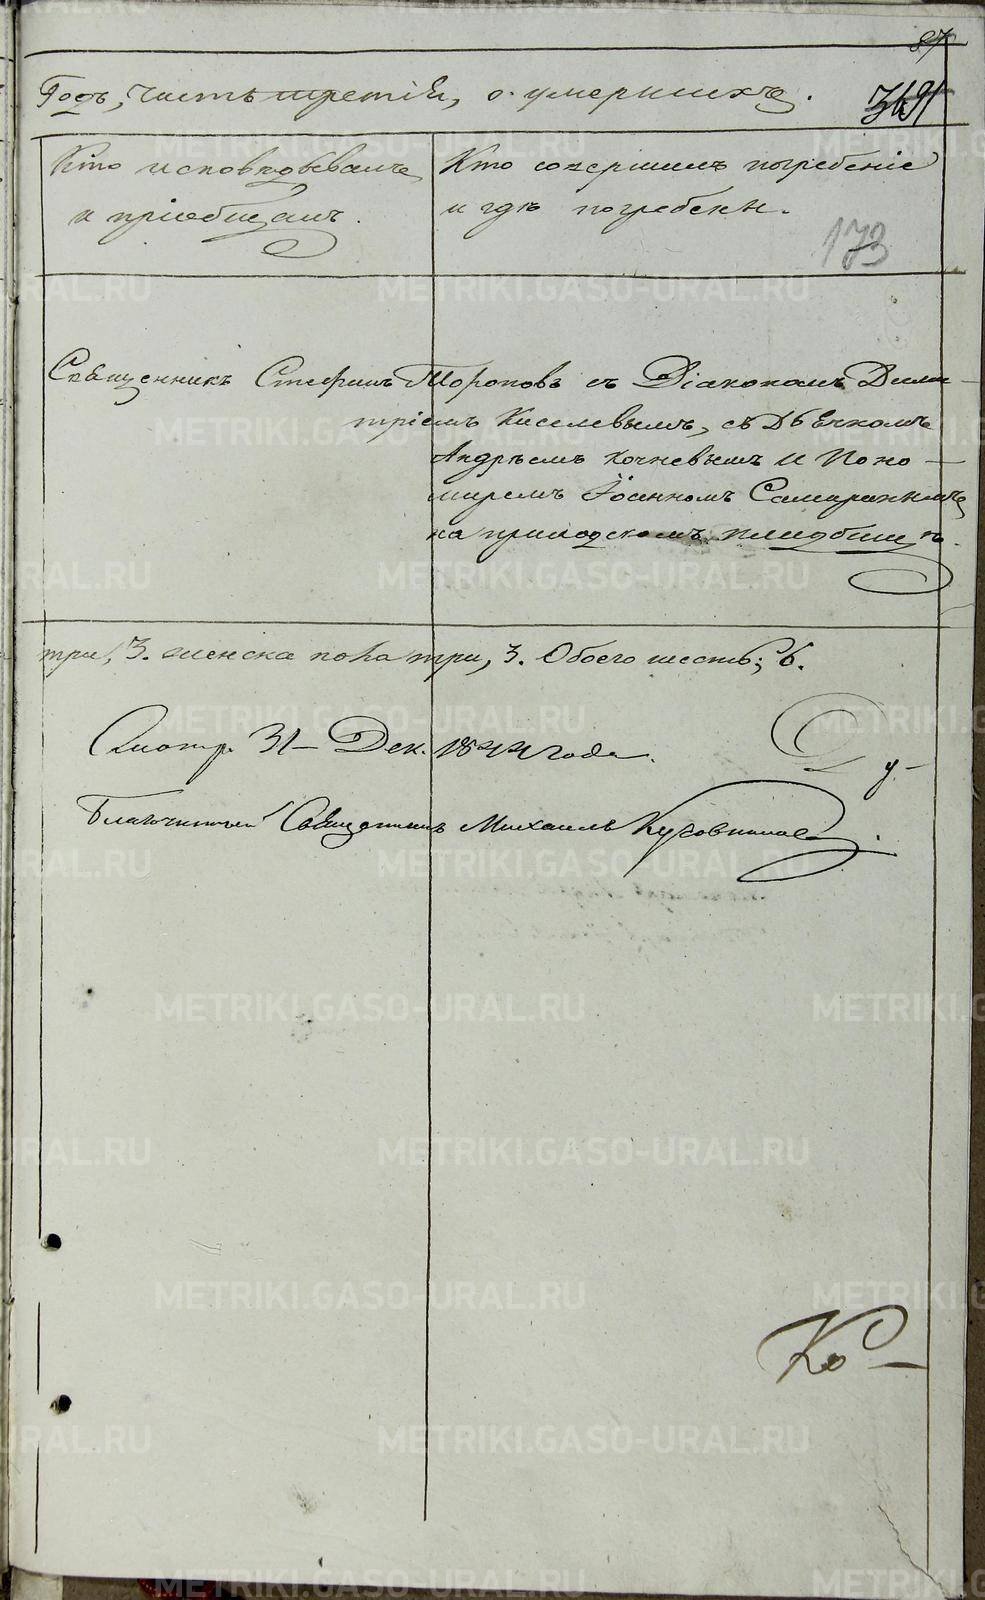 87
Годъ, часть третія, о умершихъ.
3491
Кто исповѣдывалъ
и пріобщалъ.
Кто совершилъ погребеніе
и гдѣ погребены.
173
Священникъ Стефанъ Тороповъ съ Діакономъ Дими-
тріемъ Киселевымъ, съ Дьячкомъ
Андреемъ Кочневымъ и Поно-
маремъ Іоанномъ Самаринымъ
на приходскомъ кладбищѣ.
три, 3. женска пола три, 3. Обоего шесть; 6.
Смотр. 31 Дек. 1844 года.
Благочинный Священникъ Михаилъ
Ко-
METRIKI.GASO-URAL.RU